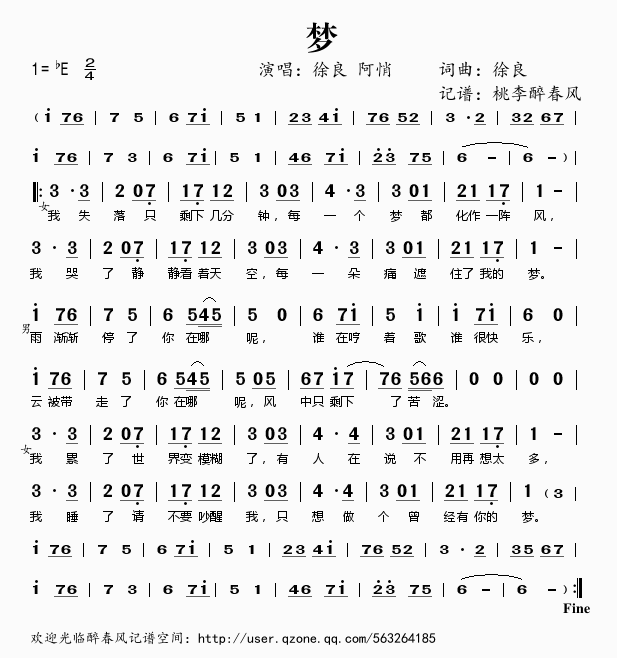 梦
1= ♭E 2/4 演唱：徐良 阿悄 词曲：徐良
记谱：桃李醉春风
( i 76 | 7 5 | 6 7i | 5 1 | 23 4i | 76 52 | 3 · 2 | 32 67 |
i 76 | 7 3 | 6 7i | 5 1 | 46 7i | 23 75 | 6 – | 6 – ) |
3 · 3 | 2 07 | 17 12 | 3 03 | 4 · 3 | 3 01 | 21 17 | 1 – |
女 我 失 落 只 剩下 几分 钟，每 一 个 梦 都 化作 一阵 风，
3 · 3 | 2 07 | 17 12 | 3 03 | 4 · 3 | 3 01 | 21 17 | 1 – |
我 哭 了 静 静看 着天 空，每 一 朵 痛 遮 住了 我的 梦。
i 76 | 7 5 | 6 545 | 5 0 | 6 7i | 5 i | i 7i | 6 0 |
男 雨 渐渐 停 了 你 在哪 呢， 谁 在哼 着 歌 谁 很快 乐，
i 76 | 7 5 | 6 545 | 5 05 | 67 i7 | 76 566 | 0 0 | 0 0 |
云 被带 走 了 你 在哪 呢，风 中只 剩下 了 苦 涩。
3 · 3 | 2 07 | 17 12 | 3 03 | 4 · 4 | 3 01 | 21 17 | 1 – |
女 我 累 了 世 界变 模糊 了，有 人 在 说 不 用再 想太 多，
3 · 3 | 2 07 | 17 12 | 3 03 | 4 · 4 | 3 01 | 21 17 | 1 ( 3 |
我 睡 了 请 不要 吵醒 我，只 想 做 个 曾 经有 你的 梦。
i 76 | 7 5 | 6 7i | 5 1 | 23 4i | 76 52 | 3 · 2 | 35 67 |
i 76 | 7 3 | 6 7i | 5 1 | 46 7i | 23 75 | 6 – | 6 – ) :||
Fine
欢迎光临醉春风记谱空间：http://user.qzone.qq.com/563264185